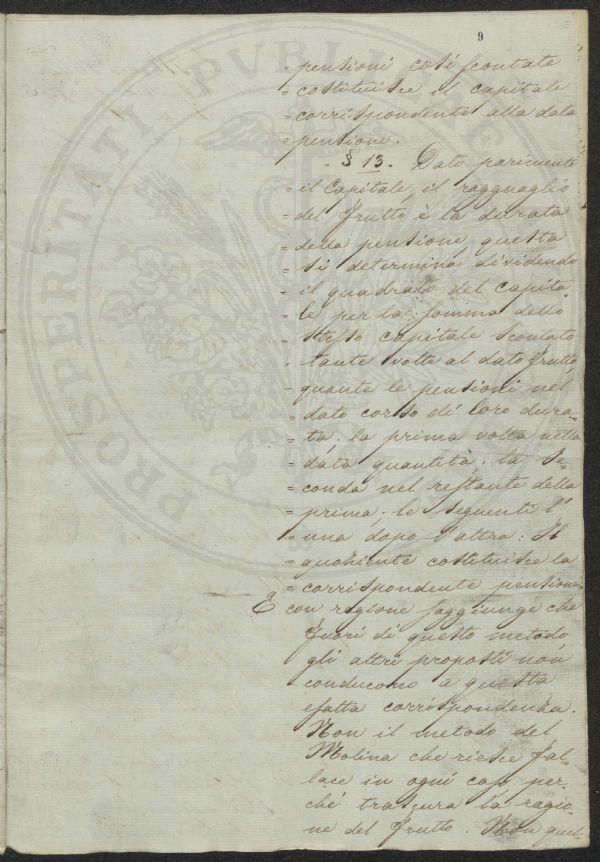 9
pensioni così scontate
= costituisce il capitale
= corrispondente alla data
= pensione.
- § 13. Dato parimente
= il Capitale, il ragguaglio
= del frutto è la durata
= della pensione, questa
= si determina dividendo
= il quadrato del capita
= le per la somma dello
= stesso capitale scontato
= tante volte al dato frutto
- quante le pensioni nel
= dato corso di loro dura=
= ta: la prima volta nella
= data quantità: la se=
= conda nel restante della
= prima: le seguenti l'
= una dopo l'altra: Il
= quoziente costituisce la
= corrispondente pensione=
E con ragione saggiunge che
fuori di questo metodo
gli altri proposti non
conducono a questa
esatta corrispondenza.
Non il metodo del
Molina che riesce fal=
lace in ogni caso per=
ché trascura la ragio=
ne del frutto. Non quel=
PROSPERITATI PVBLICAE